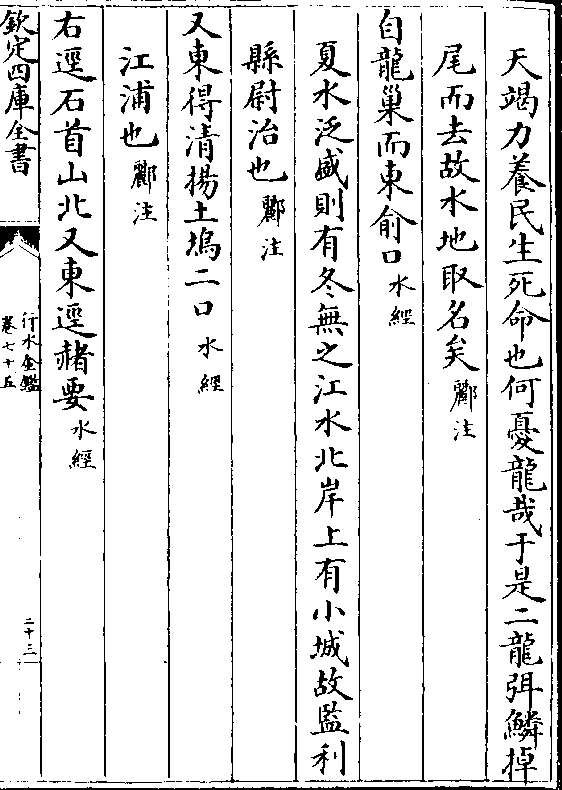 天竭力養民生死命也何憂龍哉于是二龍弭鱗掉
尾而去故水地取名矣酈注
自龍巢而東俞口水經
夏水泛盛則有冬無之江水北岸上有小城故監利
縣尉治也酈注
又東得清揚土塢二口水經
江浦也酈注
右逕石首山北又東逕赭要水經
欽定四庫全書
行水金鑑
卷七十五
二十三